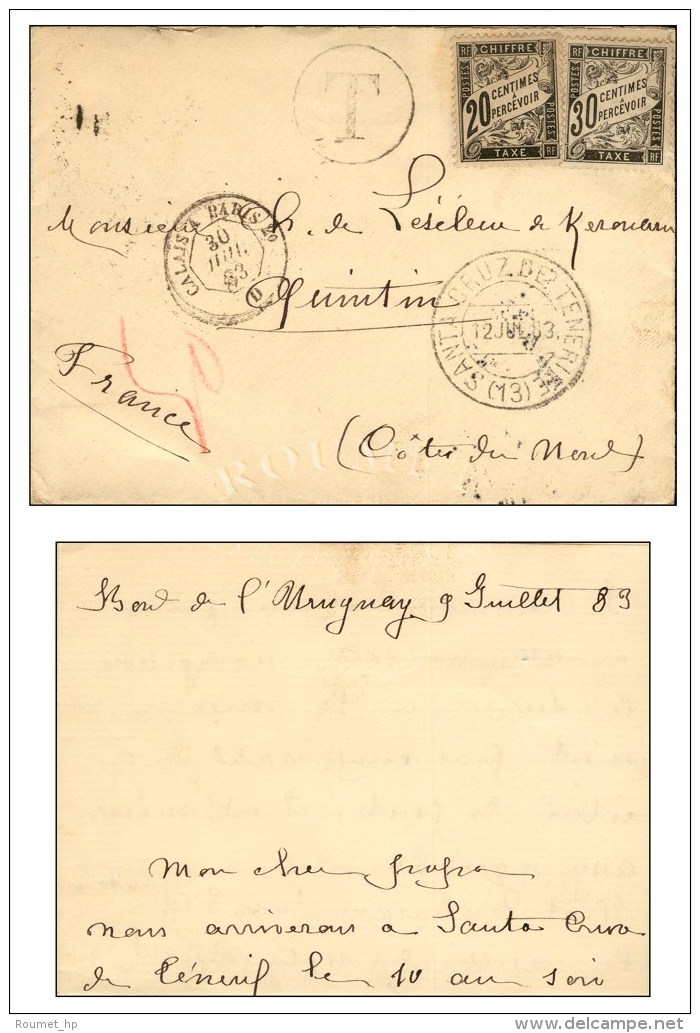 T
RF CHIFFRE
POSTES
20 CENTIMES
A
PERCEVOIR
POSTES
TAXE RF
RF CHIFFRE
POSTES
30 CENTIMES
A
PERCEVOIR
POSTES
TAXE RF
Monsieur de Leséleuc de Kerouara
CALAIS A PARIS 2º
30
JUIL.
83
D
Quintin
SANTA CRUZ DE TENERIFE
12 JUL 83.
(13)
France
(Côtes du Nord)
ROUMET
Bord de l'Uruguay 9 Juillet 83
Mon cher papa
nous arriverons à Santa Cruz
de Ténérif le 10 au soir
Roumet_hp
delcampe.net